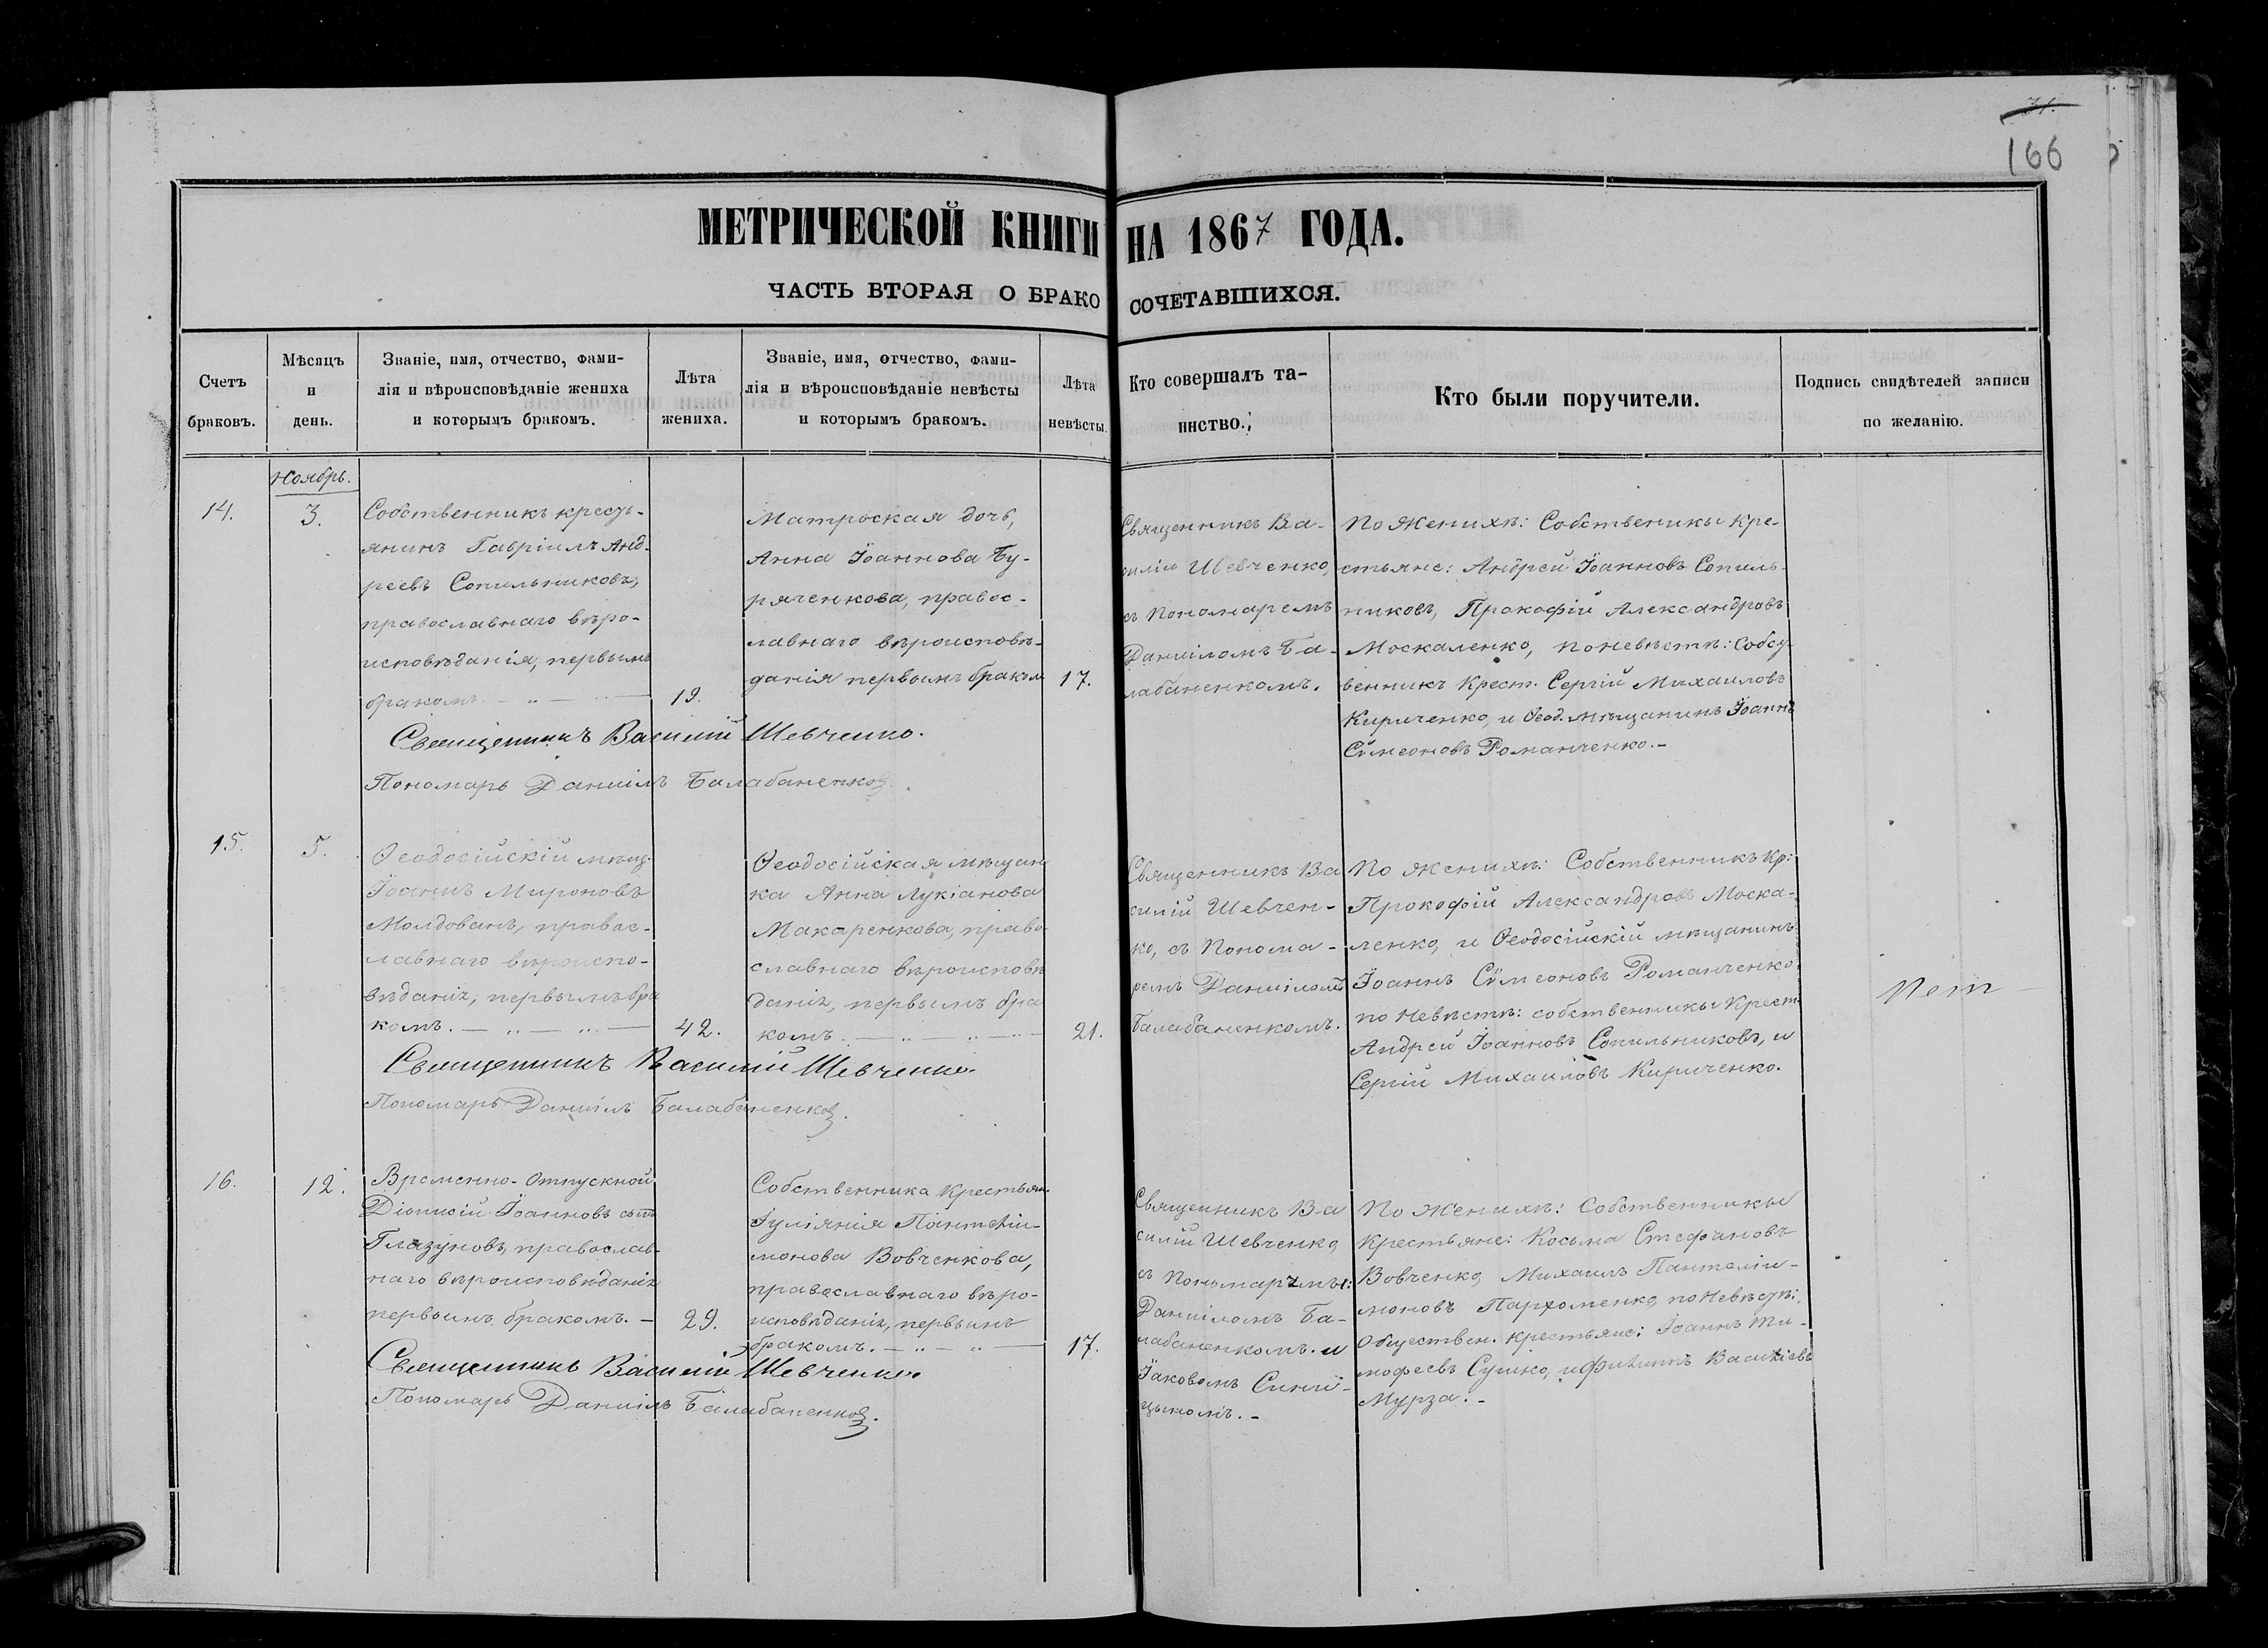 31.
166
МЕТРИЧЕСКОЙ КНИГИ НА 1867 ГОДА.
ЧАСТЬ ВТОРАЯ О БРАКОСОЧЕТАВШИХСЯ.
Счетъ
браковъ.
Мѣсяцъ
и
день.
Званіе, имя, отчество, фами-
лія и вѣроисповѣданіе жениха
и которымъ бракомъ.
Лѣта
жениха.
Званіе, имя, отчество, фами-
лія и вѣроисповѣданіе невѣсты
и которымъ бракомъ.
Лѣта
невѣсты.
Кто совершалъ та-
инство.
Кто были поручители.
Подпись свидѣтелей записи
по желанію.
Ноябрь.
14.
3.
Собственникъ кресть-
янинъ Гавріилъ Анд-
реевъ Сопильниковъ,
православнаго вѣро-
исповѣданія, первымъ
бракомъ.
19.
Матроская дочь,
Анна Іоаннова Бу-
ряченкова, правос-
лавнаго вѣроисповѣ-
данія первымъ бракомъ
17.
Священникъ Ва-
силій Шевченко,
съ Пономаремъ
Даніиломъ Ба-
лабаненкомъ.
По Женихѣ: Собственики Кре-
стьяне: Андрей Іоанновъ Сопиль-
никовъ, Прокофій Александровъ
Москаленко, по невѣстѣ: Собст-
венникъ Крест. Сергій Михаиловъ
Кириченко, и Ѳеод. мѣщанинъ Іоаннъ
Сѵмеоновъ Романченко.-
Священникъ Василій Шевченко.
Пономарь Даніилъ Балабаненко.
15.
5.
Ѳеодосійскій мѣщ.
Іоаннъ Мироновъ
Молдованъ, правос-
лавнаго вѣроиспо-
вѣданія, первымъ бра
комъ.
42.
Ѳеодосійская мѣщан
ка Анна Лукіанова
Макаренкова, право-
славнаго вѣроисповѣ
данія, первымъ бра
комъ.
21.
Священникъ Ва
силій Шевчен-
ко, съ Понома-
ремъ Даніиломъ
Балабаненкомъ.
По Женихѣ: Собственникъ Кр:
Прокофій Александровъ Моска-
ленко, и Ѳеодосійскій мѣщанинъ
Іоаннъ Сѵмеоновъ Романченко.
по Невѣстѣ: собственники Крест.
Андрей Іоанновъ Сопильниковъ, и
Сергій Михаиловъ Кириченко.
Священникъ Василій Шевченко.
Пономарь Даніилъ Балабаненко.
16.
12.
Временно-Отпускной
Діонисій Іоанновъ сынъ
Глазуновъ, православ-
наго вѣроисповѣданія
первымъ бракомъ. -
29.
Собственника Крестьян.
Іуліянія Пантеліи-
монова Вовченкова,
православнаго вѣро-
исповѣданія, первымъ
бракомъ.
17.
Священникъ Ва
силій Шевченко
съ Пономарями:
Даніиломъ Ба-
лабаненкомъ. и
Іаковомъ Сини-
цынымъ.-
По Женихѣ: Собственники
Крестьяне: Косьма Стефановъ
Вовченко, Михаилъ Пантеліи-
моновъ Пархоменко, по Невѣстѣ:
Обществен. крестьяне: Іоаннъ Ти-
мофеевъ Сушко, и Филиппъ Василіевъ
Мурза.-
Священникъ Василій Шевченко.
Пономарь Даніилъ Балабаненко.